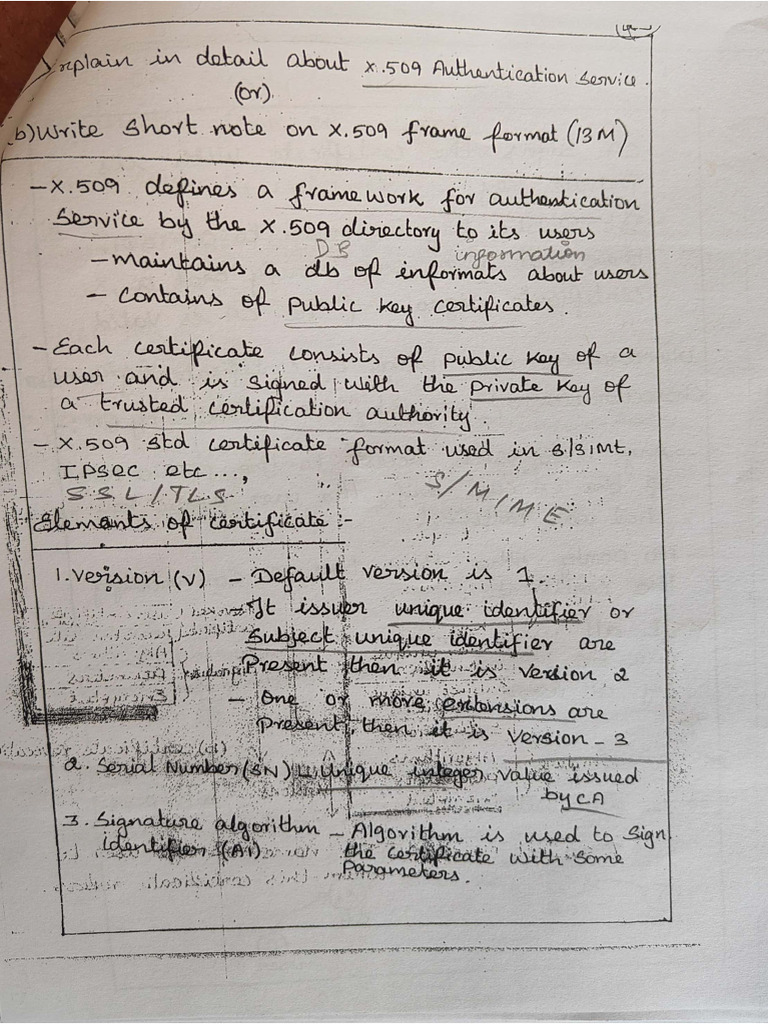 xplain in detail about X.509 Authentication Service.
(or)
b) Write short note on X.509 frame format (13M)
- X.509 defines a framework for authentication
Service by the X.509 directory to its users
DB information
- maintains a db of informats about users
- contains of public key certificates.
- Each certificate consists of public key of a
user and is signed with the private key of
a trusted certification authority.
- X.509 std certificate format used in S/SIMt,
IPSEC etc...,
SSL/TLS S/MIME
Elements of certificate :-
1. Version (V) - Default version is 1.
- It issuer unique identifier or
Subject unique identifier are
Present then it is version 2
- One or more extensions are
Present, then it is version - 3
2. Serial Number (SN) - Unique integer value issued
by CA
3. Signature algorithm - Algorithm is used to sign
identifier (AI) the certificate with some
Parameters.